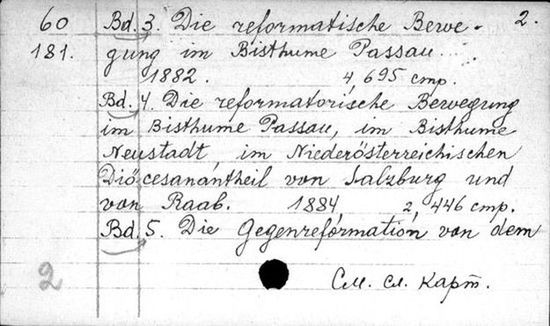 60 Bd. 3. Die reformatische Bewe- 2.
181. gung im Bisthume Passau.
1882. 4, 695 стр.
Bd. 4. Die reformatorische Bewegung
im Bisthume Passau, im Bisthume
Neustadt, im Niederösterreichischen
Diöcesanantheil von Salzburg und
von Raab. 1884 2, 446 стр.
Bd. 5. Die Gegenreformation von dem
2 См. сл. карт.